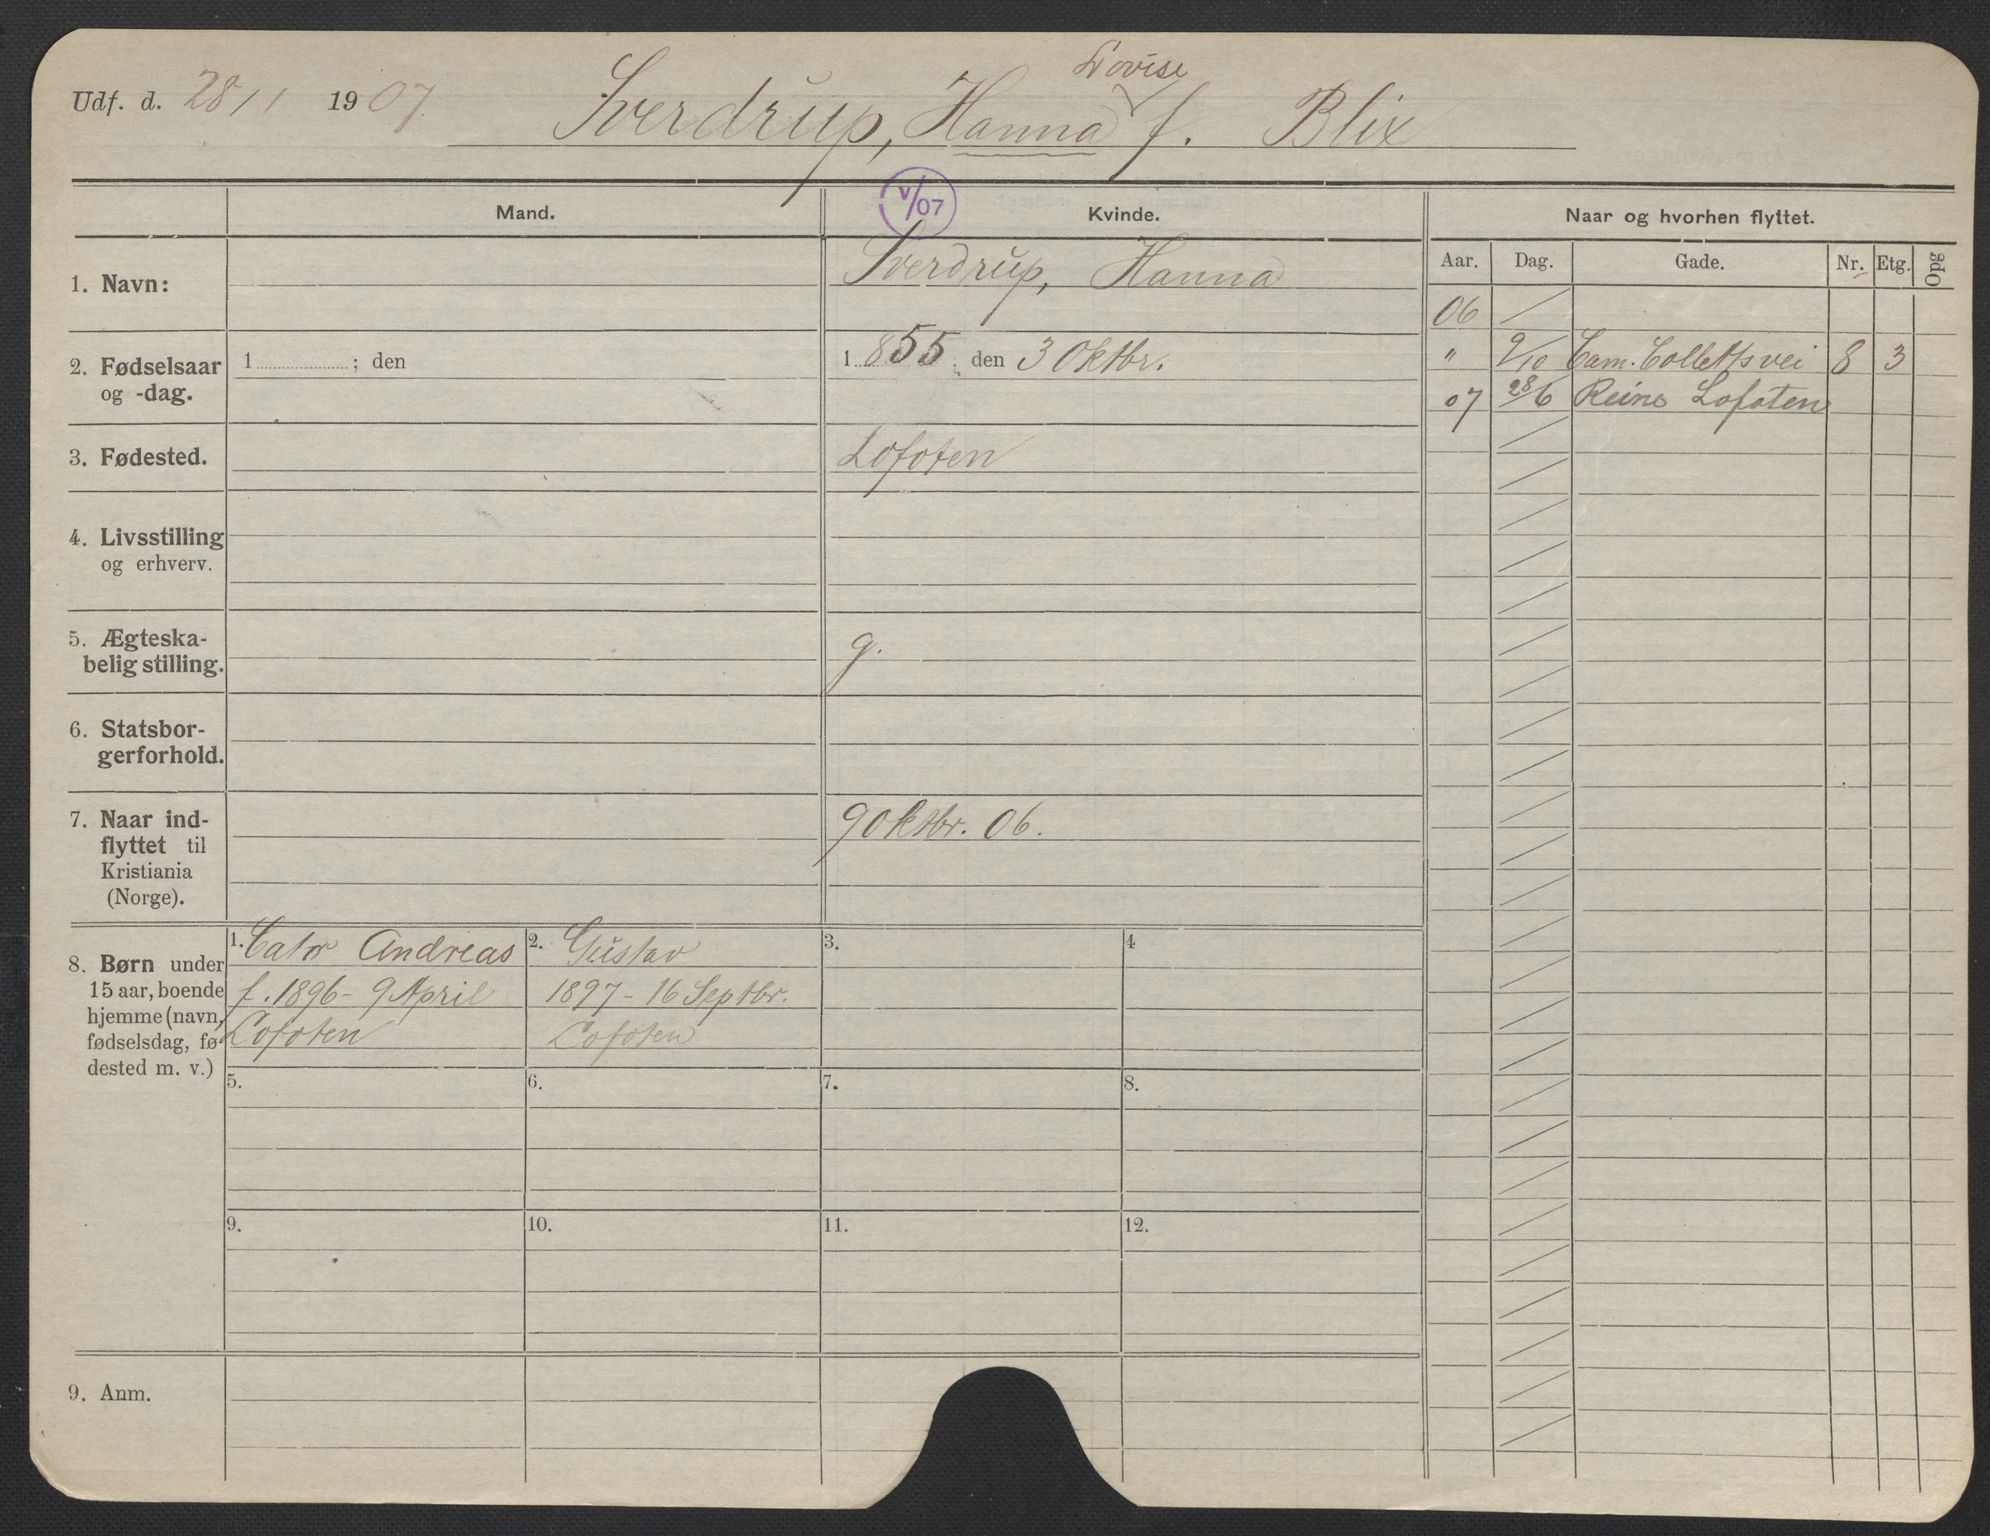 Lovise
Udf. d. 28/1 1907. Sverdrup, Hanna f. Blix
V/07
Mand. Kvinde. Naar og hvorhen flyttet.
Aar. Dag. Gade. Nr. Etg. Opg
1. Navn: Sverdrup, Hanna
06
2. Fødselsaar og -dag. 1 ; den 1 855 ; den 3 Oktbr.
" 9/10 Cam. Colletts vei 8 3
07 28/6 Reine Lofoten
3. Fødested. Lofoten
4. Livsstilling
og erhverv.
5. Ægteska-
belig stilling. g.
6. Statsbor-
gerforhold.
7. Naar ind-
flyttet til
Kristiania
(Norge). 9 Oktbr. 06.
8. Børn under
15 aar, boende
hjemme (navn,
fødselsdag, fø-
dested m. v.)
1. Cato Andreas
f. 1896 - 9 April
Lofoten
2. Gustav
1897 - 16 Septbr.
Lofoten
3.
4
5.
6.
7.
8.
9.
10.
11.
12.
9. Anm.